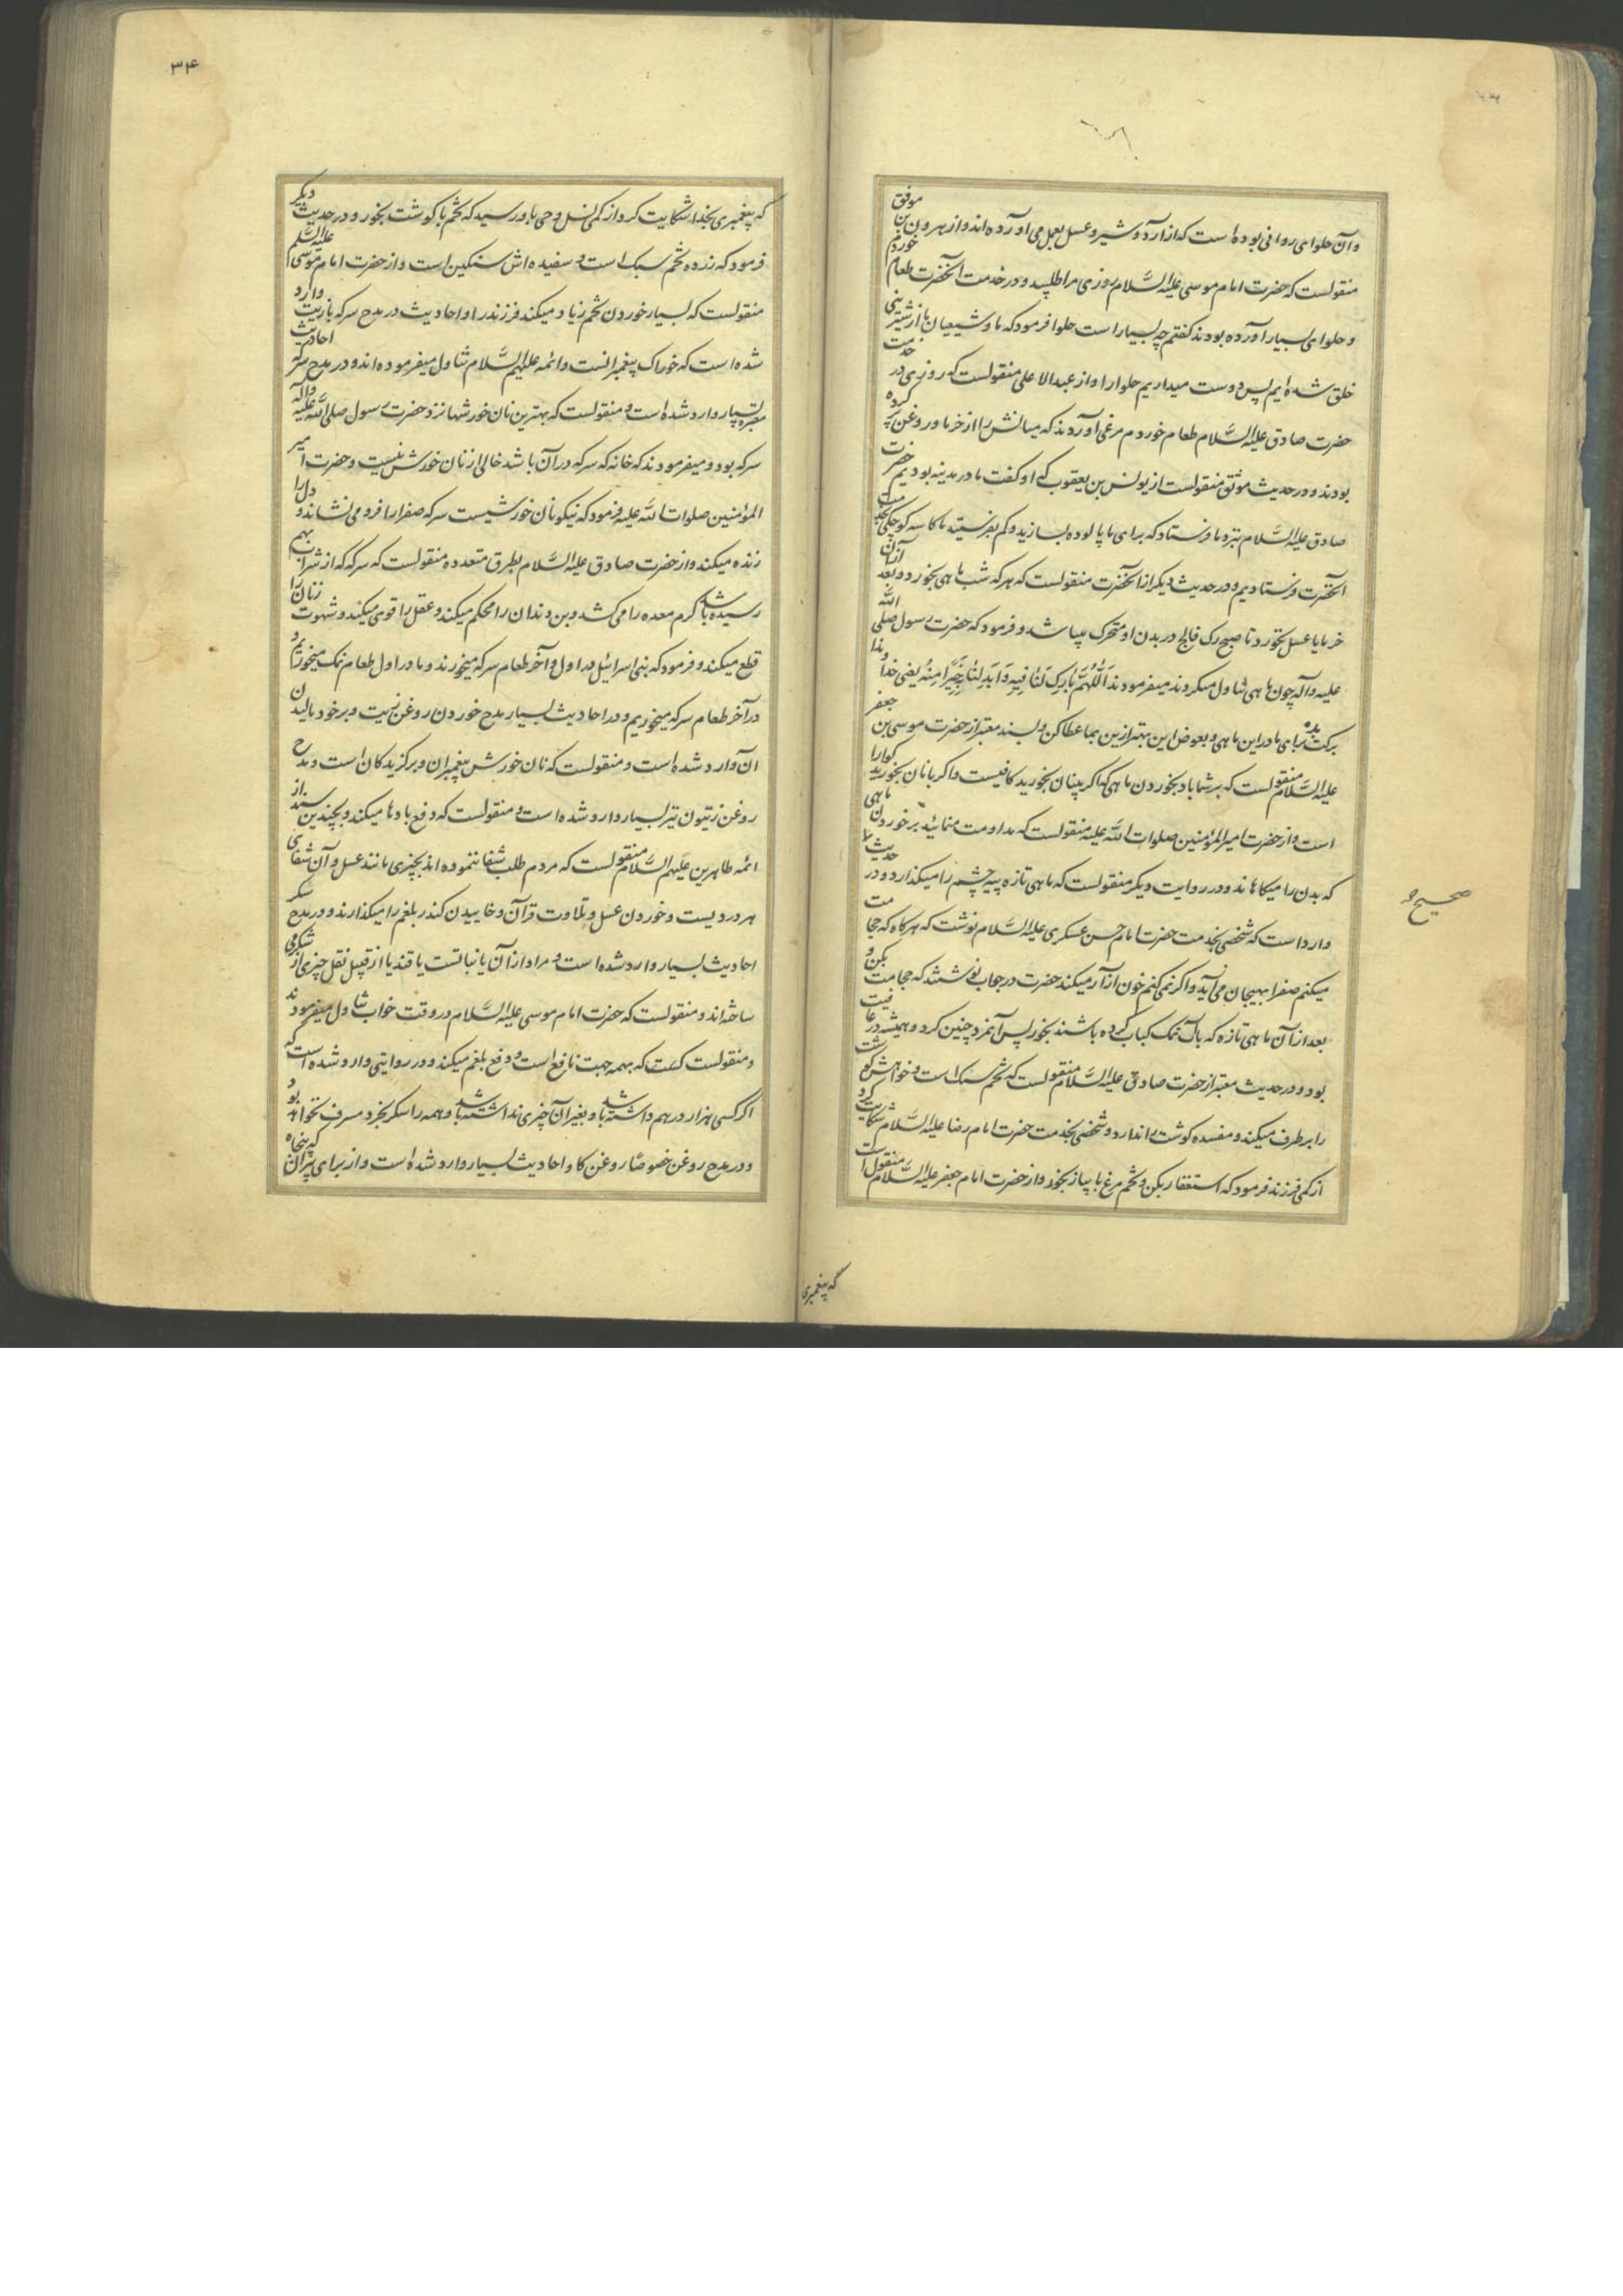 وآن حلوای روانی بوده است که از آرد و شیر و عسل بعمل می آورده اند و از هرون بن موفق
منقولست که حضرت امام موسی علیه السَّلام روزی مرا طلبید و در خدمت آنحضرت طعام خوردم
و حلوای بسیار آورده بودند گفتم چه بسیار است حلوا فرمود که ما و شیعیان ما از شیرینی
خلق شده ایم پس دوست میداریم حلوا را و از عبد الاعلی منقولست که روزی در خدمت
حضرت صادق علیه السَّلام طعام خوردم مرغی آوردند که میانش را از خرما و روغن پر کرده
بودند و در حدیث موثق منقولست از یونس بن یعقوب که او گفت ما در مدینه بودیم حضرت
صادق علیه السَّلام بنزد ما فرستاد که برای ما پالوده بسازید و کم بفرستید ما کاسه کوچکی بخدمت
آنحضرت فرستادیم و در حدیث دیگر از آنحضرت منقولست که هر که شب ماهی بخورد و بعد از آن
خرما یا عسل نخورد تا صبح رک فالج در بدن او متحرک میباشد و فرمود که حضرت رسول صلی الله
علیه و آله چون ماهی تناول میکردند میفرمودند اَللّٰهُمَّ بَارِک لَنَا فِیهِ وَاَبدِلنَا خَیرًا مِنهُ یعنی خداوندا
برکت بده برای ما در این ماهی و بعوض این بهتر از این بما عطا کن و بسند معتبر از حضرت موسی بن جعفر
علیه السَّلام منقولست که بر شما باد بخوردن ماهی که اگر بینان بخورید کافیست و اگر با نان بخورید کوارا
است و از حضرت امیر المؤمنین صلوات الله علیه منقولست که مداومت منمائید بر خوردن ماهی
که بدن را میکاهاند و در روایت دیگر منقولست که ماهی تازه پیه چشم را میکدازد و در حدیث
وارد است که شخصی بخدمت حضرت امام حسن عسکری علیه السَّلام نوشت که هرکاه که حجامت
میکنم صفرا بهیجان می آید و اگر نمی کنم خون آزار میکند حضرت در جواب نوشتند که حجامت بکن و
بعد از آن ماهی تازه که با آب نمک کباب کرده باشند بخور پس آنمرد چنین کرد و همیشه در عافیت
بود و در حدیث معتبر از حضرت صادق علیه السَّلام منقولست که تخم سبک است و خواهش گوشت
را بر طرف میکند و مفسده کوشت را ندارد و شخصی بخدمت حضرت امام رضا علیه السَّلام شکایت کرد
از کمی فرزند فرمود که استغفار بکن و تخم مرغ با پیاز بخور و از حضرت امام جعفر علیه السَّلام منقول است
صحیح
که پیغمبری
۳۴
که پیغمبری بخدا شکایت کرد از کمی نسل وحی باو رسید که تخم با کوشت بخور و در حدیث دیگر
فرمود که زرده تخم سبک است و سفیده اش سنکین است و از حضرت امام موسی علیه السَّلم
منقولست که بسیار خوردن تخم زیاد میکند فرزند را و احادیث در مدح سرکه با زیت وارد
شده است که خوراک پیغمبرانست و ائمه علیهم السَّلام تناول میفرموده اند و در مدح سرکه احادیث
معتبره بسیار وارد شده است و منقولست که بهترین نان خورشها نزد حضرت رسول صلی الله علیه و آله
سرکه بود و میفرمودند که خانه که سرکه در آن باشد خالی از نان خورش نیست و حضرت امیر
المؤمنین صلوات الله علیه فرمود که نیکو نان خورشیست سرکه صفرا را فرو می نشاند و دل را
زنده میکند و از حضرت صادق علیه السَّلام بطرق متعدده منقولست که سرکه که از شراب بهم
رسیده باشد کرم معده را می کشد و بن دندان را محکم میکند و عقل را قوی میکند و شهوت زنان را
قطع میکند و فرمود که بنی اسرائیل در اول و آخر طعام سرکه میخورند و ما در اول طعام نمک میخوریم و
در آخر طعام سرکه میخوریم و در احادیث بسیار مدح خوردن روغن زیت و بر خود مالیدن
آن وارد شده است و منقولست که نان خورش پیغمبران و برگزیدکان است و مدح
روغن زیتون نیز بسیار وارد شده است و منقولست که دفع بادها میکند و بچندین سند از
ائمه طاهرین علیهم السَّلام منقولست که مردم طلب شفا ننموده اند بچیزی مانند عسل و آن شفای
هر دردیست و خوردن عسل و تلاوت قرآن و خاییدن کندر بلغم را میکدازند و در مدح شکر
احادیث بسیار وارد شده است و مراد از آن یا نباتست یا قند یا از قبیل نقل چیزی از شکر می
ساخته اند و منقولست که حضرت امام موسی علیه السَّلام در وقت خواب تناول میفرمودند
و منقولست که بهمه جهت نافع است و دفع بلغم میکند و در روایتی وارد شده است که
اگر کسی هزار درهم داشته باشد و بغیر آن چیزی نداشته باشد و همه را شکر بخرد مسرف نخواهد بود و
و در مدح روغن خصوصًا روغن کاو احادیث بسیار وارد شده است و از برای پیران که پنجاه